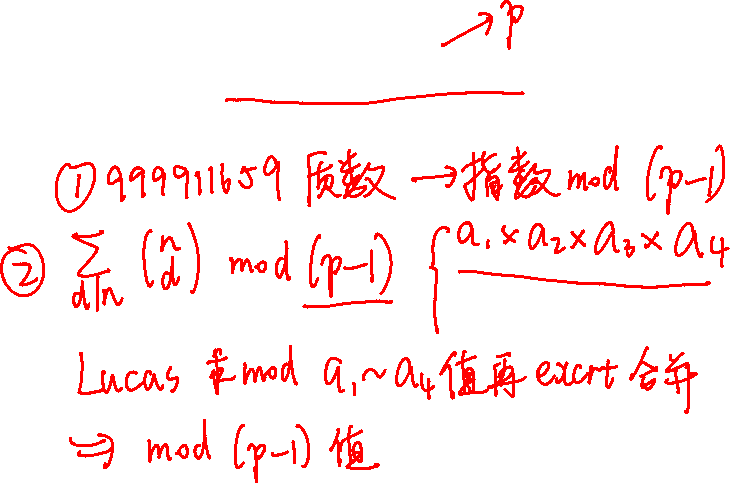 →p
①999911659 质数 →指数 mod (p-1)
② ∑_{d|n} (n d) mod (p-1) { a₁×a₂×a₃×a₄
Lucas 求mod a₁~a₄值再 excrt 合并
⇒ mod (p-1) 值